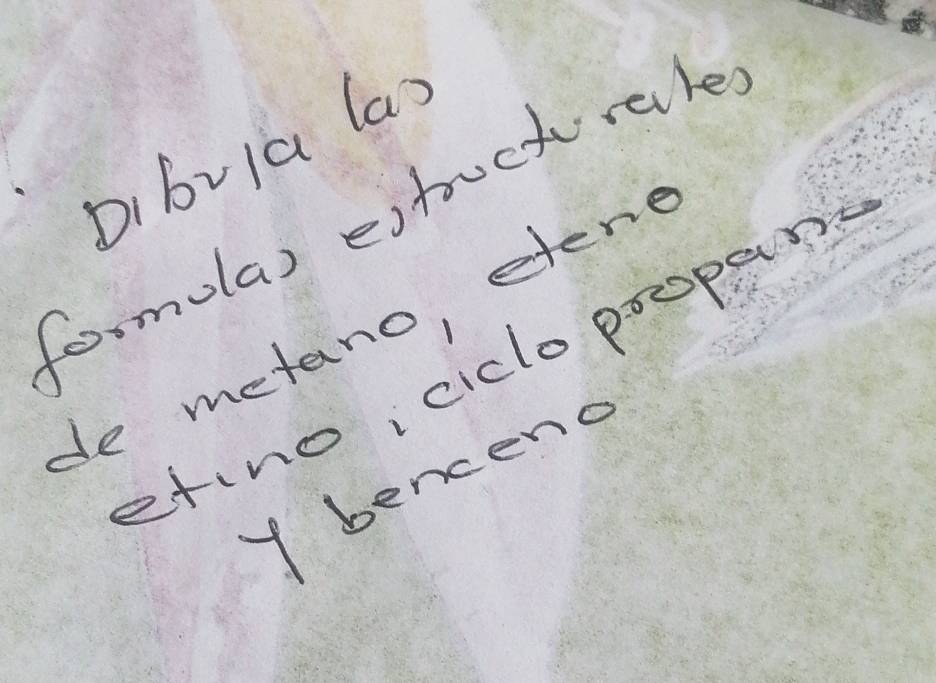 Dibuja las
formulas estructurales
de metano, eteno
etino, ciclo propano
y benceno